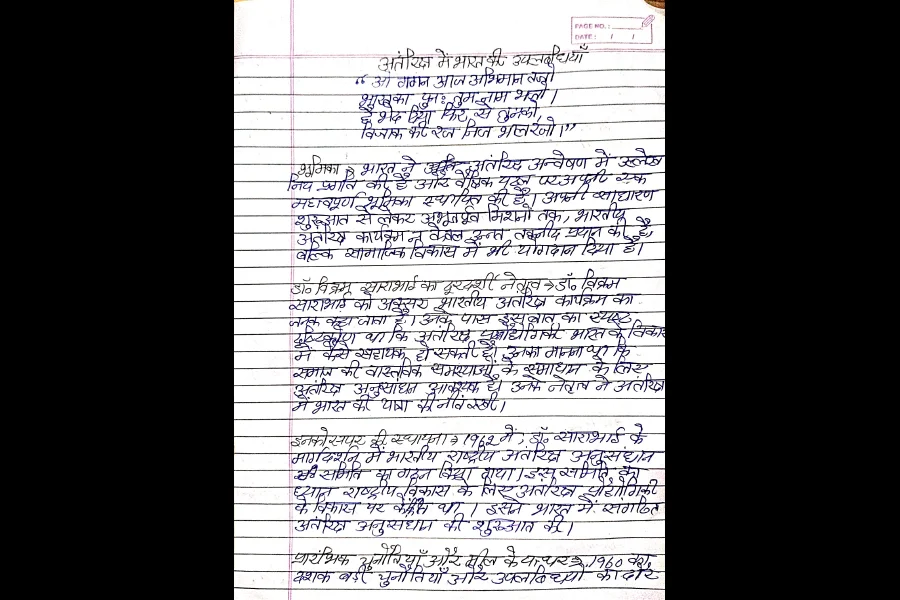 PAGE NO.:
DATE: / /
अंतरिक्ष में भारत की उपलब्धियाँ
“ओ गगन आज अभिमान तजो
का पुनः तुम नाम भजो।
है भेद दिया फिर से तुमको,
की रज निज भाल रजो।”
भूमिका → भारत ने अंतरिक्ष अन्वेषण में उल्लेख
निय प्रगति की है और वैश्विक पटल पर अपनी एक
महत्वपूर्ण भूमिका स्थापित की है। अपनी साधारण
शुरुआत से लेकर अभूतपूर्व मिशनों तक, भारतीय
अंतरिक्ष कार्यक्रम न केवल उन्नत तकनीक प्रदान की है,
बल्कि सामाजिक विकास में भी योगदान दिया है।
डॉ. विक्रम साराभाई का दूरदर्शी नेतृत्व → डॉ. विक्रम
साराभाई को अक्सर भारतीय अंतरिक्ष कार्यक्रम का
जनक कहा जाता है। उनके पास इस बात का स्पष्ट
दृष्टिकोण था कि अंतरिक्ष प्रौद्योगिकी भारत के विकास
में कैसे सहायक हो सकती है। उनका मानना था कि
समाज की वास्तविक समस्याओं के समाधान के लिए
अंतरिक्ष अनुसंधान आवश्यक है। उनके नेतृत्व ने अंतरिक्ष
में भारत की यात्रा की नींव रखी।
इनकोसपर की स्थापना → 1962 में, डॉ. साराभाई के
मार्गदर्शन में भारतीय राष्ट्रीय अंतरिक्ष अनुसंधान
समिति का गठन किया गया। इस समिति का
ध्यान राष्ट्रीय विकास के लिए अंतरिक्ष प्रौद्योगिकी
के विकास पर केंद्रित था। इसने भारत में संगठित
अंतरिक्ष अनुसंधान की शुरुआत की।
प्रारंभिक चुनौतियाँ और मील के पत्थर → 1960 का
दशक बड़ी चुनौतियों और उपलब्धियों का दौर